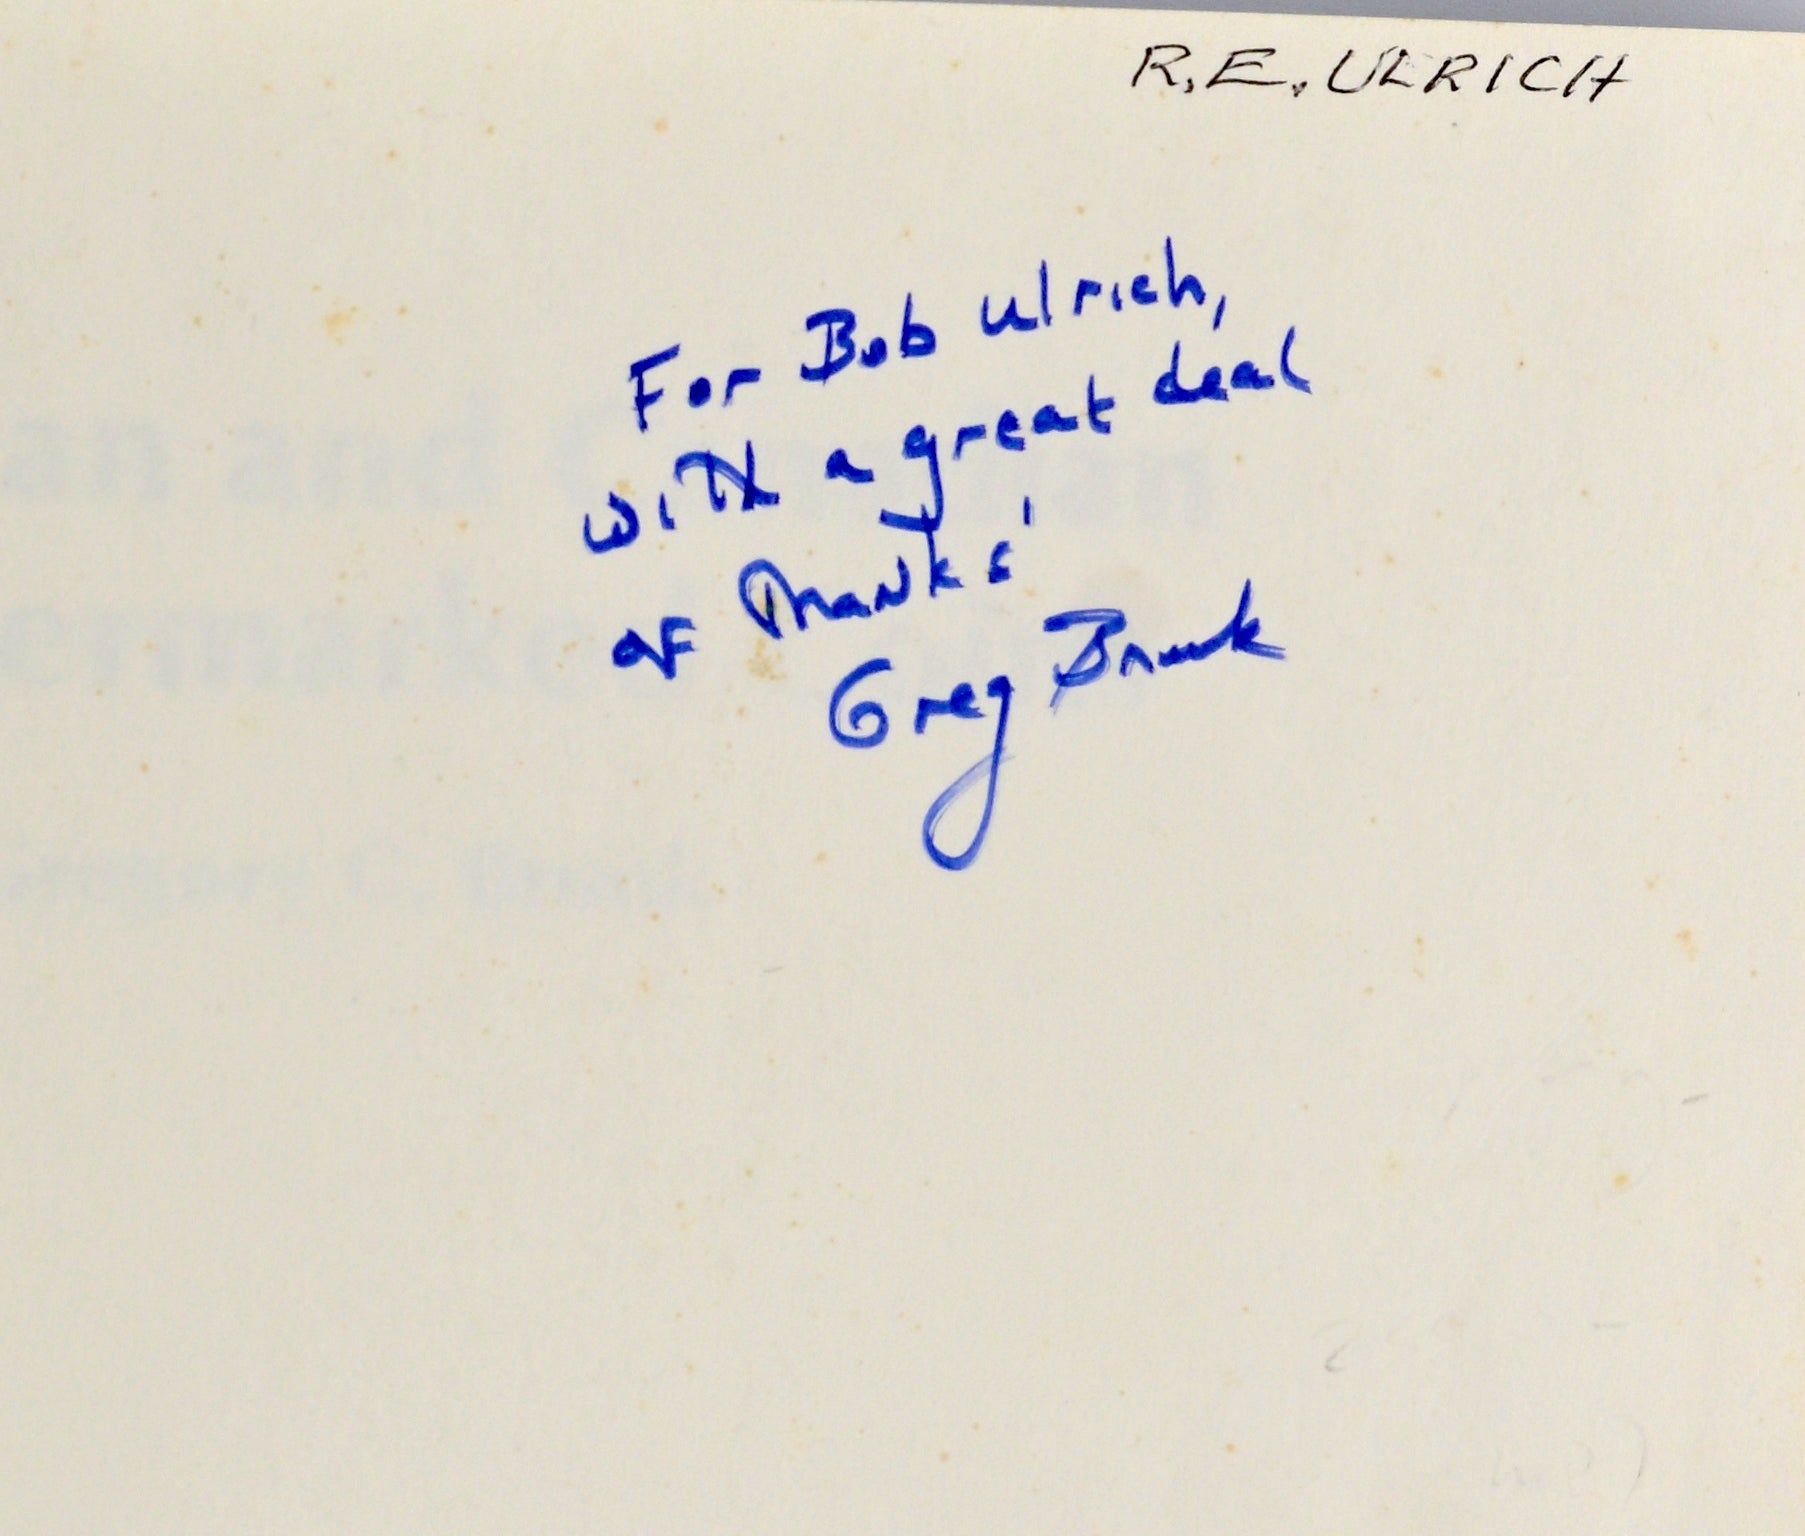 R.E. ULRICH
For Bob Ulrich,
with a great deal
of thanks!
Greg